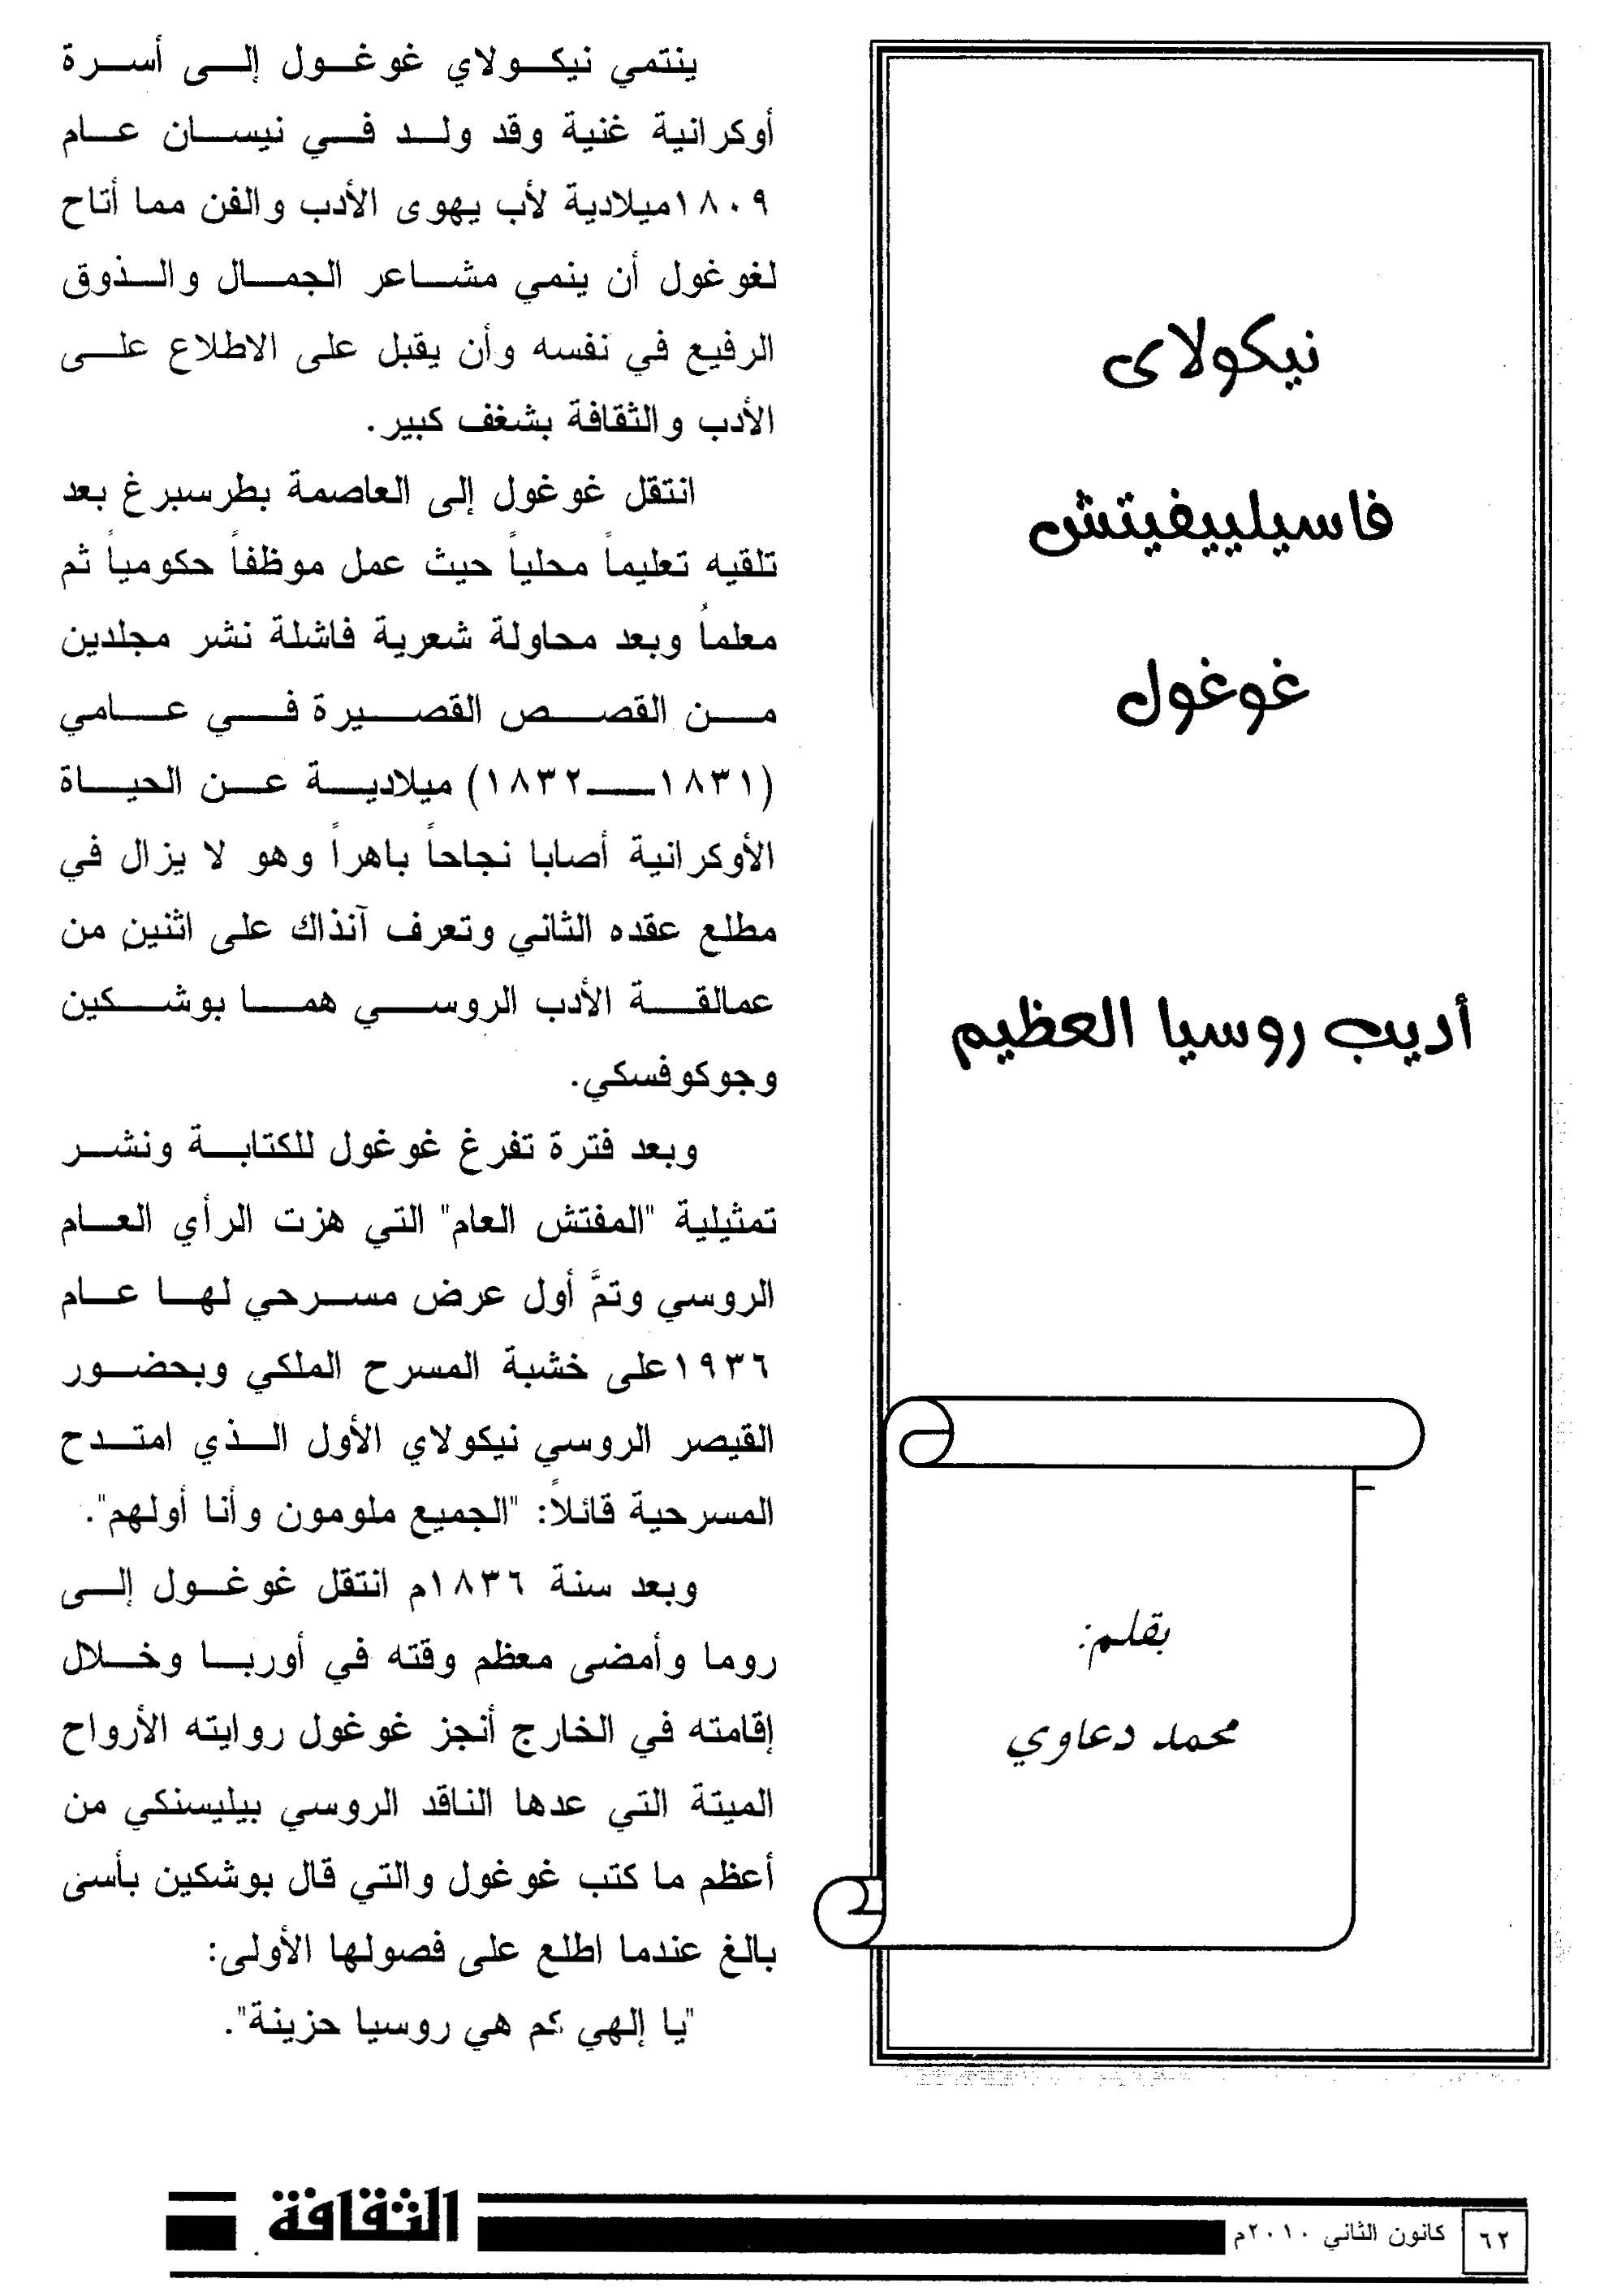 نيكولاي
فاسيلييفيتش
غوغول
أديب روسيا العظيم
بقلم:
محمد دعاوي
ينتمي نيكولاي غوغول إلى أسرة
أوكرانية غنية وقد ولد في نيسان عام
١٨٠٩ميلادية لأب يهوى الأدب والفن مما أتاح
لغوغول أن ينمي مشاعر الجمال والذوق
الرفيع في نفسه وأن يقبل على الاطلاع على
الأدب والثقافة بشغف كبير.
انتقل غوغول إلى العاصمة بطرسبرغ بعد
تلقيه تعليماً محلياً حيث عمل موظفاً حكومياً ثم
معلماً وبعد محاولة شعرية فاشلة نشر مجلدين
من القصص القصيرة في عامي
(١٨٣١ــ١٨٣٢) ميلادية عن الحياة
الأوكرانية أصابا نجاحاً باهراً وهو لا يزال في
مطلع عقده الثاني وتعرف آنذاك على اثنين من
عمالقة الأدب الروسي هما بوشكين
وجوكوفسكي.
وبعد فترة تفرغ غوغول للكتابة ونشر
تمثيلية "المفتش العام" التي هزت الرأي العام
الروسي وتمَّ أول عرض مسرحي لها عام
١٩٣٦على خشبة المسرح الملكي وبحضور
القيصر الروسي نيكولاي الأول الذي امتدح
المسرحية قائلاً: "الجميع ملومون وأنا أولهم".
وبعد سنة ١٨٣٦م انتقل غوغول إلى
روما وأمضى معظم وقته في أوربا وخلال
إقامته في الخارج أنجز غوغول روايته الأرواح
الميتة التي عدها الناقد الروسي بيليسنكي من
أعظم ما كتب غوغول والتي قال بوشكين بأسى
بالغ عندما اطلع على فصولها الأولى:
"يا إلهي كم هي روسيا حزينة".
٦٢
كانون الثاني ٢٠١٠م
الثقافة